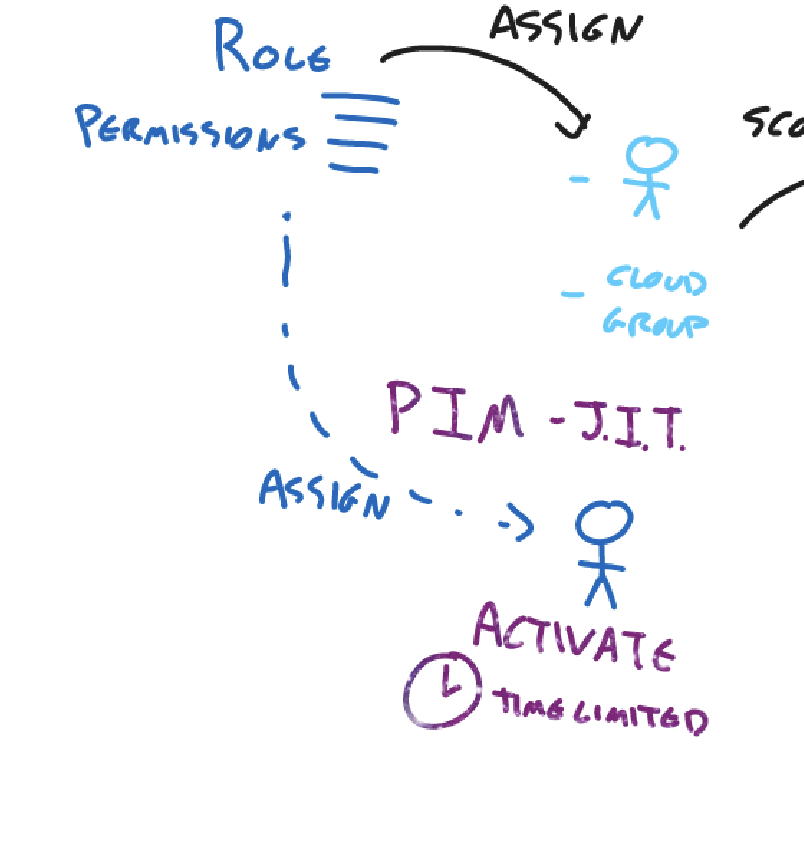 ASSIGN
ROLE
PERMISSIONS
-
- CLOUD
GROUP
PIM - J.I.T.
ASSIGN
ACTIVATE
TIME LIMITED